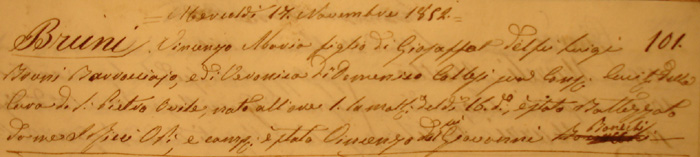 = Mercoldì 17. Novembre 1852. =
Bruni Vincenzo Maria figlio di Giosaffat del fu Luigi 101.
Bruni Barrocciajo, e di Veronica di Domenico Collesi sua Conj.
Cura di S. Pietro Ovile, nato all'ore 1. la matt. del dì 16. d.o, è stato Battezzato
da me e comp. è stato Vincenzo del Giovanni Bonelli